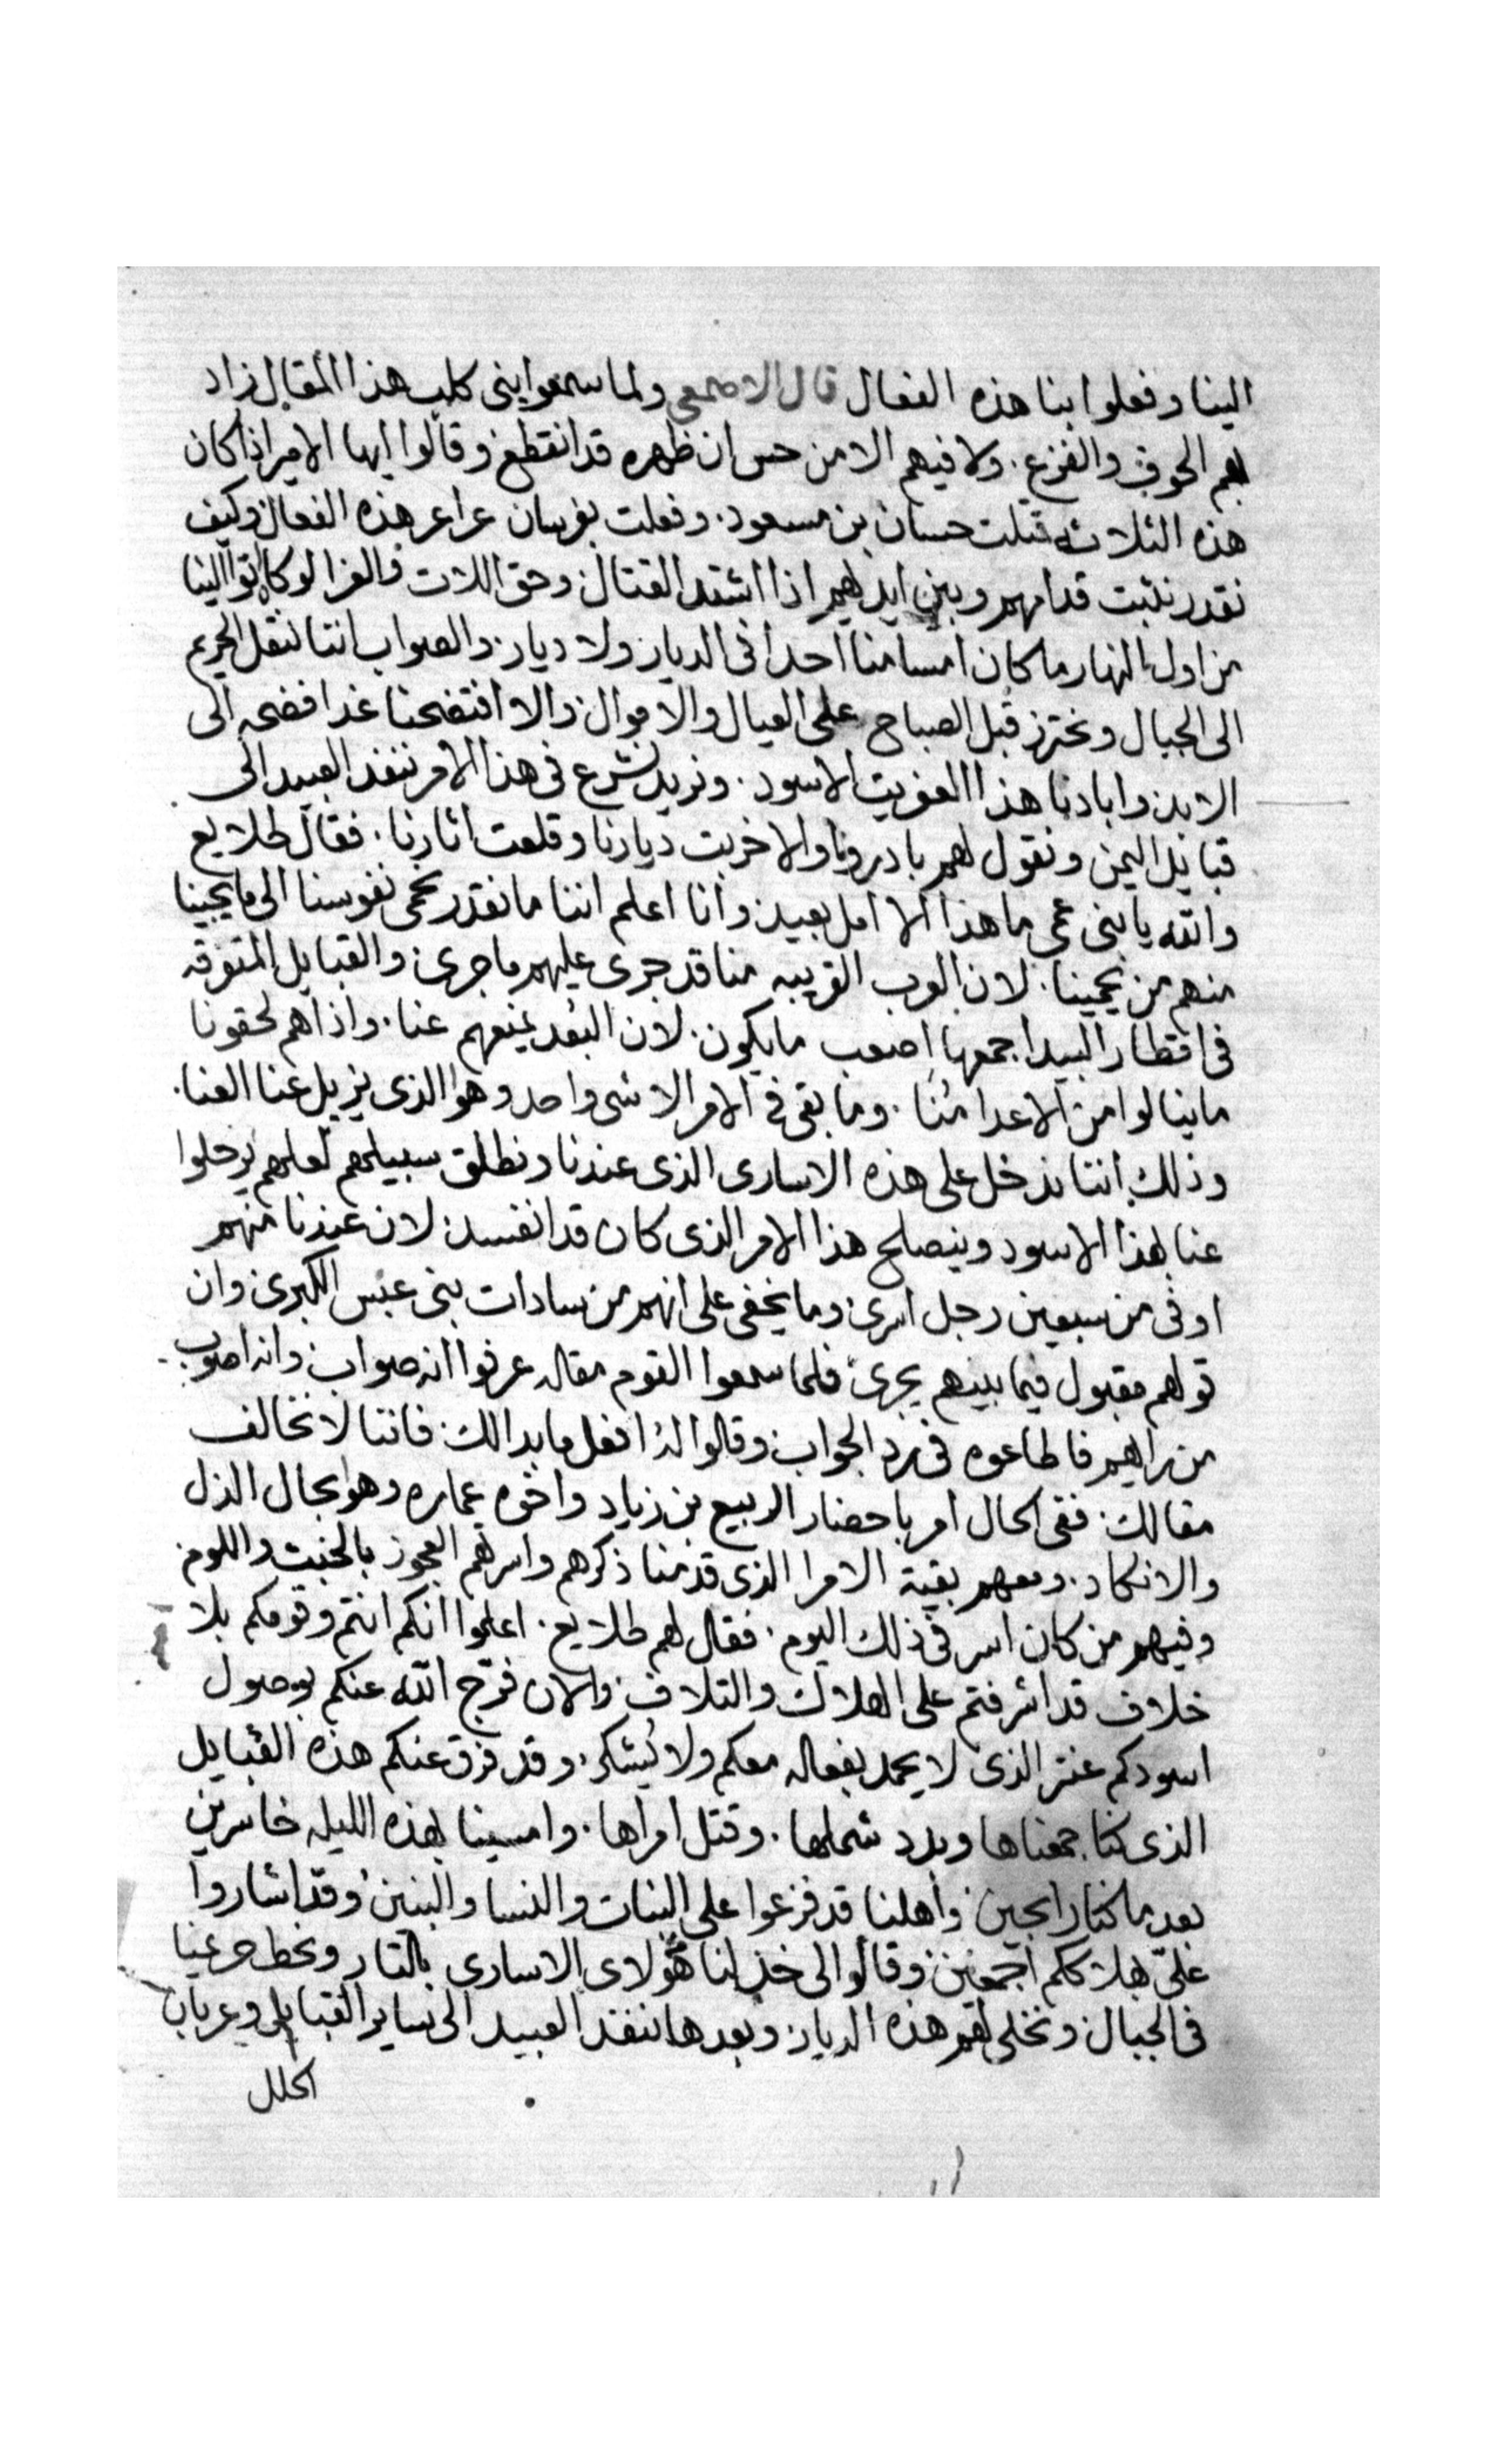 الينا وفعلوا بنا هذه الفعال قال الاصمعي ولما سمعوا بنى كلب هذا المقال زاد
بهم الخوف والفزع. ولا فيهم الا من حس ان ظهره قد انقطع وقالوا ايها الامير اذا كان
هذه الثلاثه قتلت حسان بن مسعود. وفعلت بفرسان عراعر هذه الفعال وكيف
نقدر نثبت قدامهم وبين ايديهم اذا اشتد القتال وحق اللات والعزا لو كانوا اتوا الينا
من اول النهار ما كان امسا منا احدا فى الديار ولا ديار. والصواب اننا ننقل الحريم
الى الجبال ونحترز قبل الصباح على العيال والاموال والا افتضحنا غدا فضحه الى
الابد وابادنا هذا العفريت الاسود. ونريد نشرع فى هذا الامر ننفذ العبيد الى
قبايل اليمن ونقول لهم بادرونا والا خربت ديارنا وقلعت اثارنا. فقال طلايع
والله يا بنى عمى ما هذا الا امل بعيد وانا اعلم اننا ما نقدر نحمى نفوسنا الى ما يجينا
منهم من يحمينا. لان العرب القريبه منا قد جرى عليهم ما جرى والقبايل المتفرقه
فى اقطار البيدا جمعها اصعب ما يكون. لان البُعد يمنعهم عنا. واذا هم لحقونا
ما ينالوا من الاعدا مُنا. وما بقى فى الامر الا شى واحد وهو الذى يزيل عنا العنا.
وذلك اننا ندخل على هذه الاسارى الذى عندنا ونطلق سبيلهم لعلهم يرحلوا
عنا بهذا الاسود وينصلح هذا الامر الذى كان قد انفسد. لان عندنا منهم
اوفى من سبعين رجل اسرى وما يخفى على انهم من سادات بنى عبس الكبرى وان
قولهم مقبول فيما بينهم يجرى فلما سمعوا القوم مقاله عرفوا انه صواب وانه اصوب
من رايهم فاطاعوه فى رد الجواب وقالوا لهُ افعل ما بدا لك فاننا لا نخالف
مقالك. ففى الحال امر باحضار الربيع بن زياد واخوه عماره وهو بحال الذل
والانكاد. ومعهم بقية الامرا الذى قدمنا ذكرهم واسرتهم العجوز بالخبث واللوم
وفيهم من كان اسر فى ذلك اليوم. فقال لهم طلايع. اعلموا انكم انتم وقومكم بلا
خلاف قد اشرفتم على الهلاك والتلاف والان فرّج الله عنكم بوصول
اسودكم عنتر الذى لا يحمد بفعاله معكم ولا يُشكر. وقد فرق عنكم هذه القبايل
الذى كنا جمعناها وبدد شملها. وقتل امراها. وامسينا بهذه الليله خاسرين
بعد ما كنا رابحين واهلنا قد فزعوا على البنات والنسا والبنين وقد اشاروا
علىّ بهلاككم اجمعين وقالوا لى خذ لنا من هولاى الاسارى بالتار ونحط حريمنا
فى الجبال ونخلى لهم هذه الديار وبعدها ننفذ العبيد الى ساير القبايل وعربان
الحلل